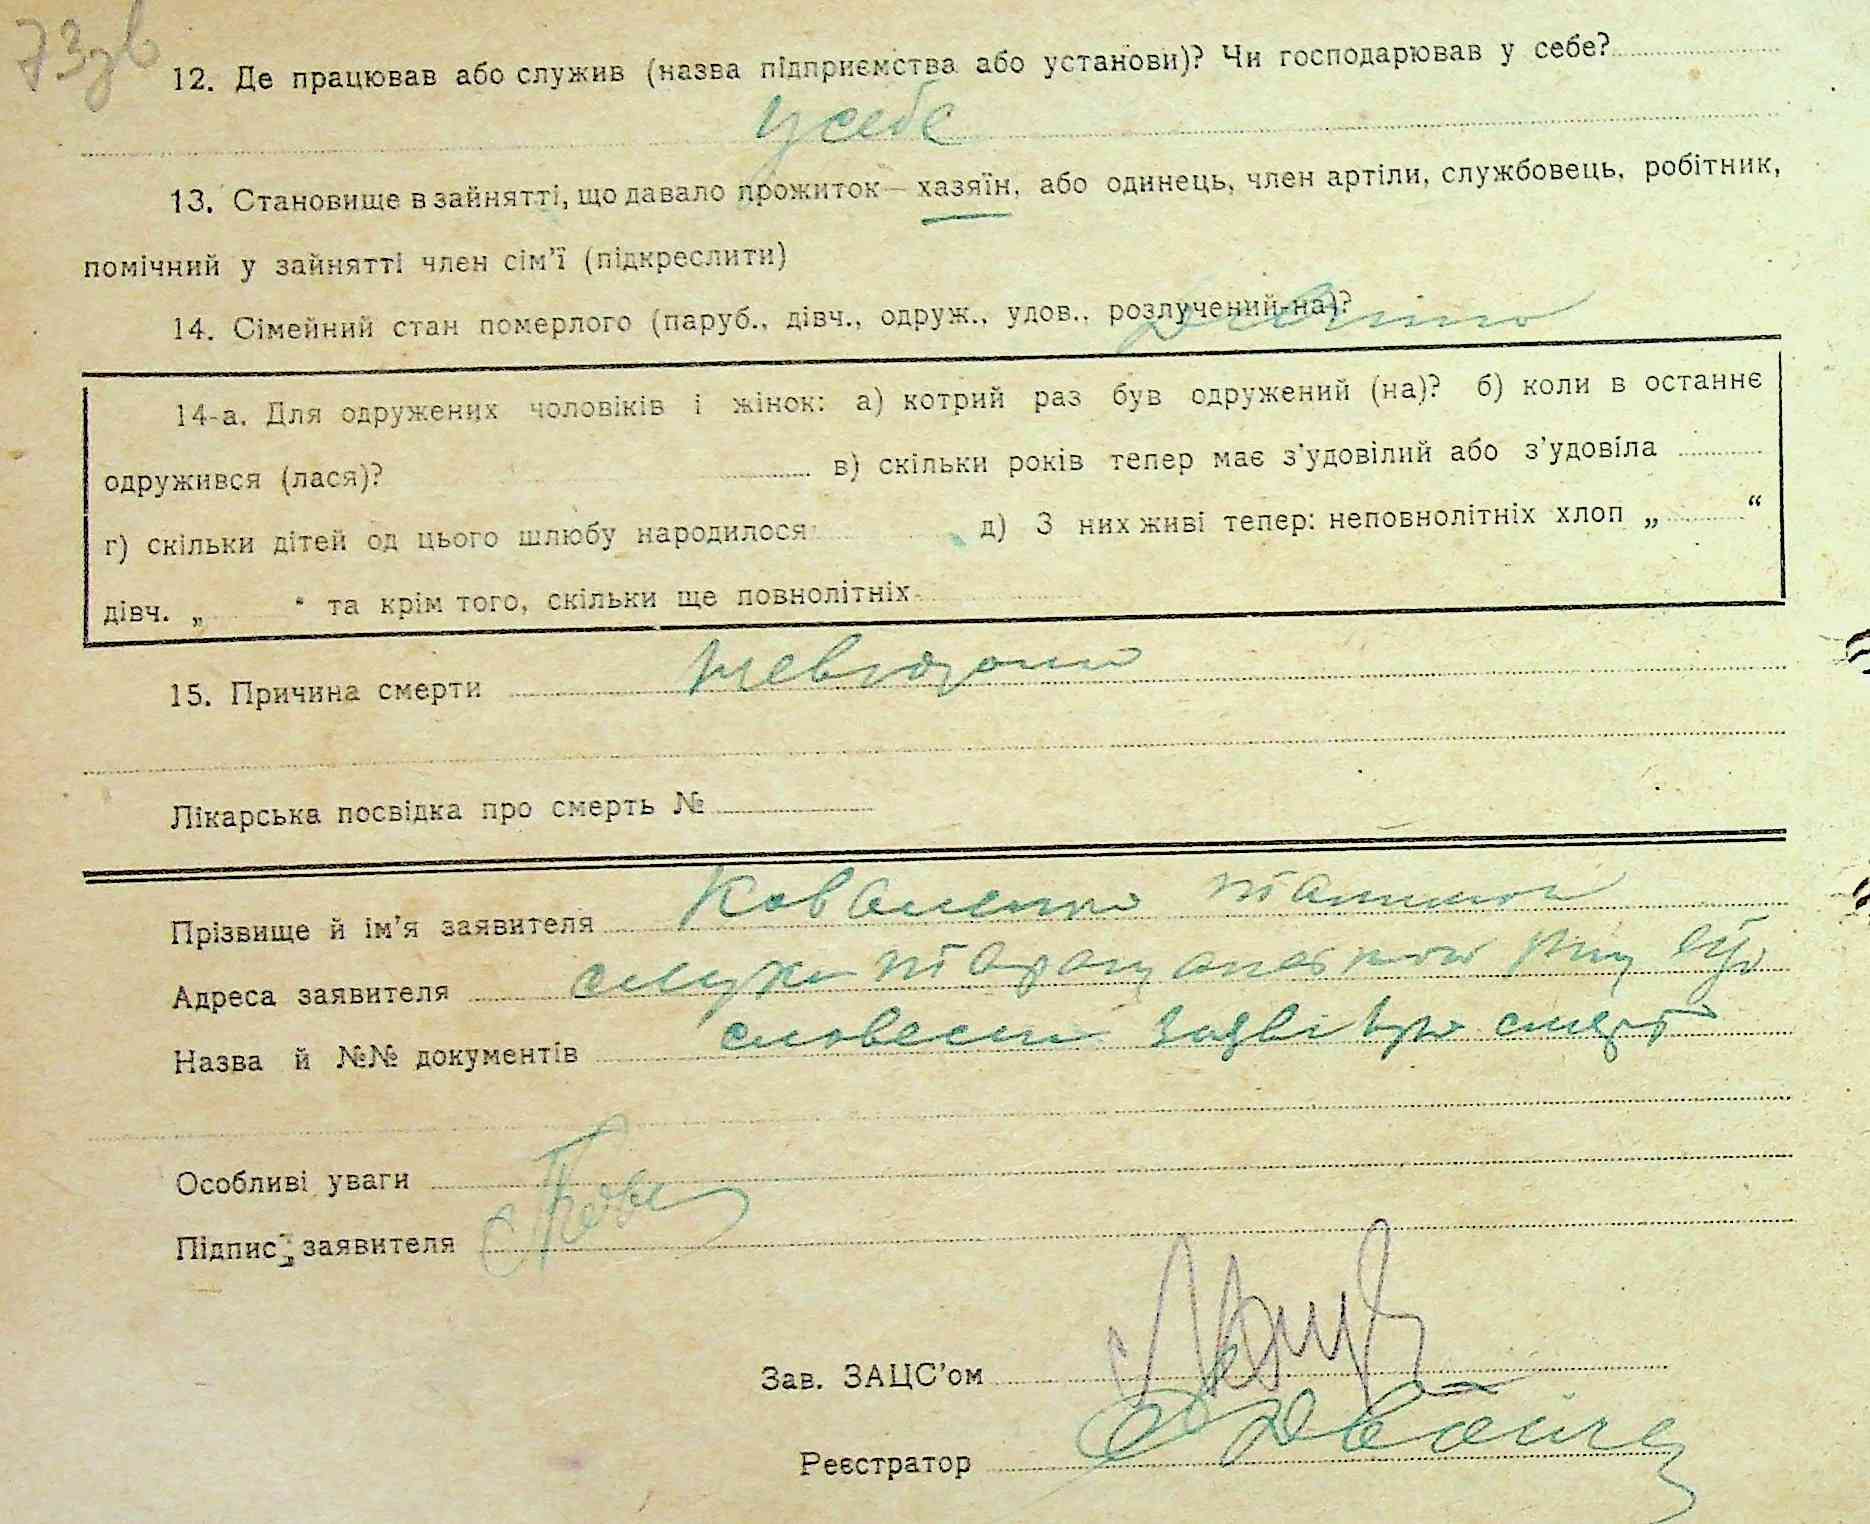 73зв
12. Де працював або служив (назва підприємства або установи)? Чи господарював у себе?
у себе
13. Становище в зайнятті, що давало прожиток — хазяїн, або одинець, член артіли, службовець, робітник,
помічний у зайнятті член сім'ї (підкреслити)
14. Сімейний стан померлого (паруб., дівч., одруж., удов., розлучений-на)?
14-а. Для одружених чоловіків і жінок: а) котрий раз був одружений (на)? б) коли в останнє
одружився (лася)? в) скільки років тепер має з'удовілий або з'удовіла
г) скільки дітей од цього шлюбу народилося д) З них живі тепер: неповнолітніх хлоп „ “
дівч. „ “ та крім того, скільки ще повнолітніх
15. Причина смерти невідомо
Лікарська посвідка про смерть №
Прізвище й ім'я заявителя Коваленко
Адреса заявителя
Назва й №№ документів словесні заяві про смерт
Особливі уваги
Підпис „ заявителя
Зав. ЗАЦС'ом
Реєстратор